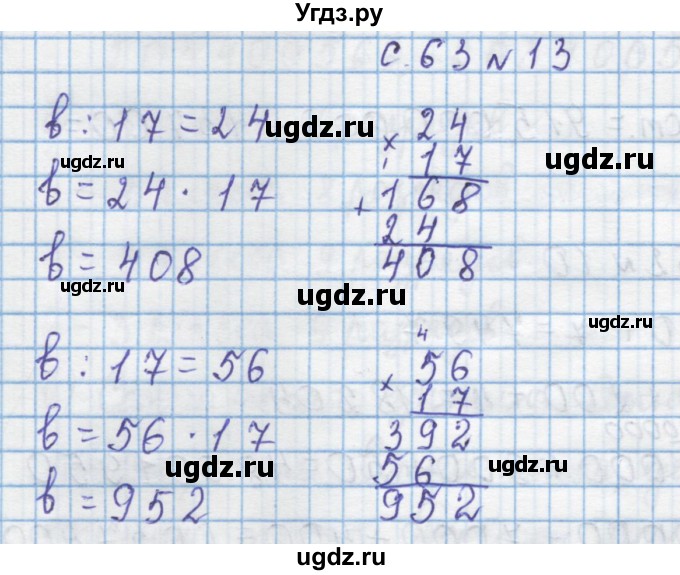 Угдз.ру
с. 63 № 13
в : 17 = 24
в = 24 · 17
в = 408
× 24
17
+ 168
24
408
в : 17 = 56
в = 56 · 17
в = 952
4
× 56
17
392
56
952
ugdz.ru
ugdz.ru
ugdz.ru
ugdz.ru
ugdz.ru
ugdz.ru
ugdz.ru
ugdz.ru
ugdz.ru
ugdz.ru
ugdz.ru
ugdz.ru